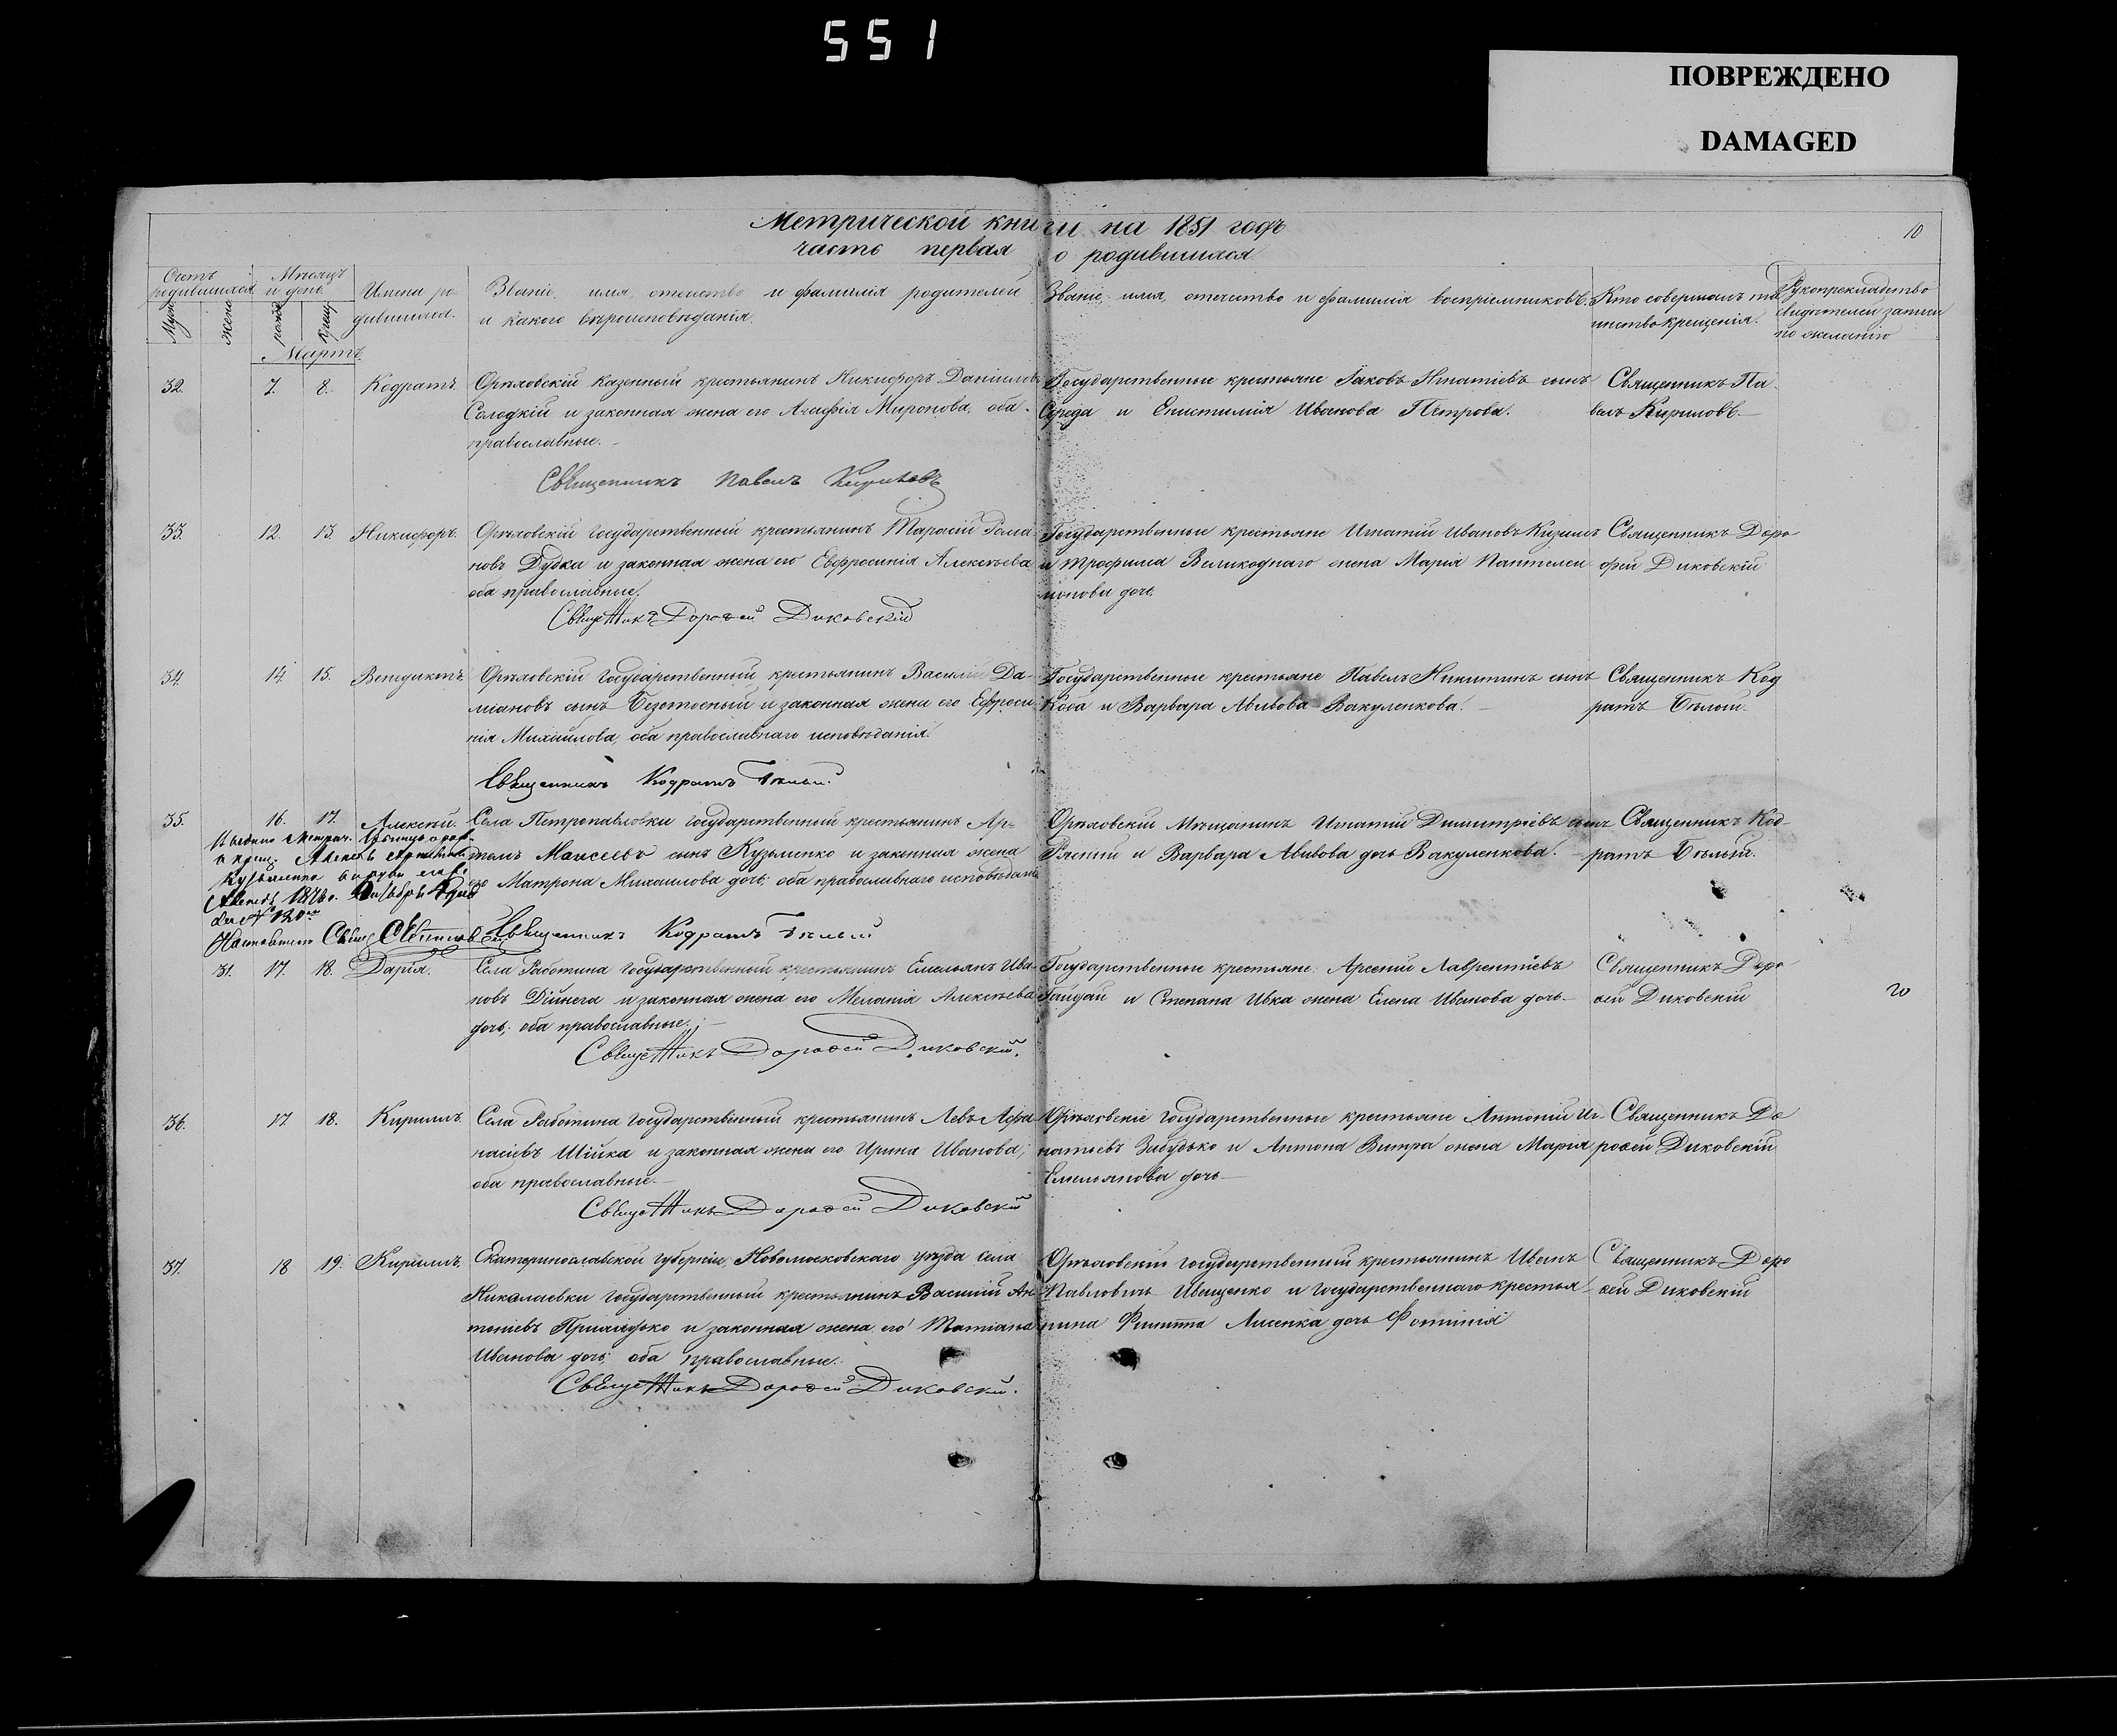 551
ПОВРЕЖДЕНО
DAMAGED
Метрической книги на 1851 годъ
10
часть первая о родившихся
Счетъ родившихся
Мѣсяцъ и день
Имена родившихся.
Званіе, имя, отечество и фамилія родителей
и какого вѣроисповѣданія.
Званіе, имя, отечество и фамилія воспріемниковъ.
Кто совершалъ таинство крещенія.
Рукоприкладство свидѣтелей записи по желанію
Муж.
жен.
рожд.
крещ.
Мартъ.
32. 7. 8. Кодратъ. Орѣховскій казенный крестьянинъ Никифоръ Даніиловъ Государственные крестьяне Іаковъ Игнатіевъ сынъ Священникъ Па-
Солодкій и законная жена его Агафія Миронова, оба Середа и Епистимія Иванова Петрова. велъ Кириловъ.
православные.
Священникъ Павелъ Кириловъ
33. 12. 13. Никифоръ. Орѣховскій государственный крестьянинъ Тарасій Рома- Государственные крестьяне Игнатій Ивановъ Священникъ Доро-
новъ Дудка и законная жена его Евфросинія Алексѣева и Трофима Великоднаго жена Марія Пантелей- фей Диковскій
оба православные. монова дочь
Священникъ Дорофей Диковскій
34. 14 15. Венедиктъ Орѣховскій государственный крестьянинъ Василій Да- Государственные крестьяне Павелъ Никитинъ сынъ Священникъ Код-
міановъ сынъ и законная жена его Ефроси- Коба и Варвара Авивова Вакуленкова. ратъ Бѣлый
нія Михайлова, оба православнаго исповѣданія.
Священникъ Кодратъ Бѣлый
35. 16. 17. Алексій. Села Петропавловки государственный крестьянинъ Ар- Орѣховскій Мѣщанинъ Игнатій Димитріевъ сынъ Священникъ Код-
темъ Моисеевъ сынъ Кузьменко и законная жена и Варвара Авивова дочь Вакуленкова. ратъ Бѣлый.
его Матрона Михаилова дочь, оба православнаго исповѣданія
Выдано Метрич.
и крещ. Алексѣя
Кузьменко
1876 г.
Священникъ Кодратъ Бѣлый
31. 17. 18. Дарія. Села Работина государственный крестьянинъ Емельянъ Ива- Государственные крестьяне: Арсеній Лаврентіевъ Священникъ Доро-
новъ Дійнега и законная жена его Меланія Алексѣева Гайдай и Степана Ивка жена Елена Иванова дочь фей Диковскій
дочь, оба православные.
Священникъ Дорофей Диковскій.
36. 17 18. Кириллъ. Села Работина государственный крестьянинъ Левъ Афа- Орѣховскіе государственные крестьяне Антоній Иг- Священникъ До-
насіевъ Шійка и законная жена его Ирина Иванова, натьевъ Забудько и Антона Витра жена Марія рофей Диковскій
оба православные. Емельянова дочь
Священникъ Дорофей Диковскій
37. 18 19. Кириллъ. Екатеринославской губерніи, Новомосковскаго уѣзда села Орѣховскій государственный крестьянинъ Иванъ Священникъ Доро-
Николаевки государственный крестьянинъ Василій Ан- Павловичъ Иващенко и государственнаго крестья- фей Диковскій
тоніевъ и законная жена его Татіана нина Филиппа Лисенка дочь Фотинія
Иванова дочь, оба православные.
Священникъ Дорофей Диковскій.